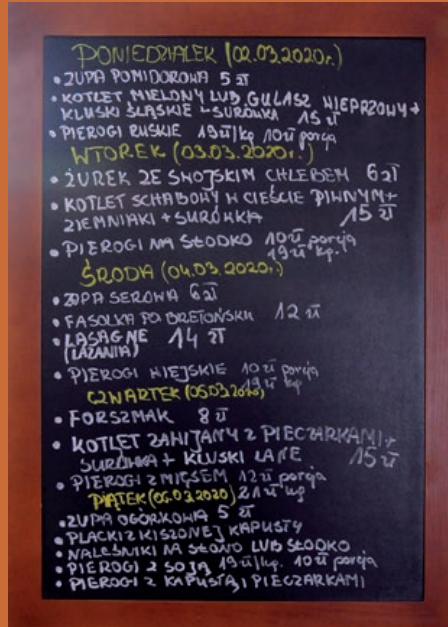 PONIEDZIAŁEK (02.03.2020r.)
• ZUPA POMIDOROWA 5 zł
• KOTLET MIELONY LUB GULASZ WIEPRZOWY +
KLUSKI ŚLĄSKIE + SURÓWKA 15 zł
• PIEROGI RUSKIE 19 zł/kg 10 zł porcja
WTOREK (03.03.2020r.)
• ŻUREK ZE SWOJSKIM CHLEBEM 6 zł
• KOTLET SCHABOWY W CIEŚCIE PIWNYM +
ZIEMNIAKI + SURÓWKA 15 zł
• PIEROGI NA SŁODKO 10 zł porcja
19 zł kg.
ŚRODA (04.03.2020r.)
• ZUPA SEROWA 6 zł
• FASOLKA PO BRETOŃSKU 12 zł
• LASAGNE 14 zł
(LAZANIA)
• PIEROGI WIEJSKIE 10 zł porcja
19 zł kg
CZWARTEK (05.03.2020)
• FORSZMAK 8 zł
• KOTLET ZAWIJANY Z PIECZARKAMI +
SURÓWKA + KLUSKI LANE 15 zł
• PIEROGI Z MIĘSEM 12 zł porcja
PIĄTEK (06.03.2020) 21 zł kg
• ZUPA OGÓRKOWA 5 zł
• PLACKI Z KISZONEJ KAPUSTY
• NALEŚNIKI NA SŁONO LUB SŁODKO
• PIEROGI Z SOJĄ 19 zł/kg. 10 zł porcja
• PIEROGI Z KAPUSTĄ I PIECZARKAMI